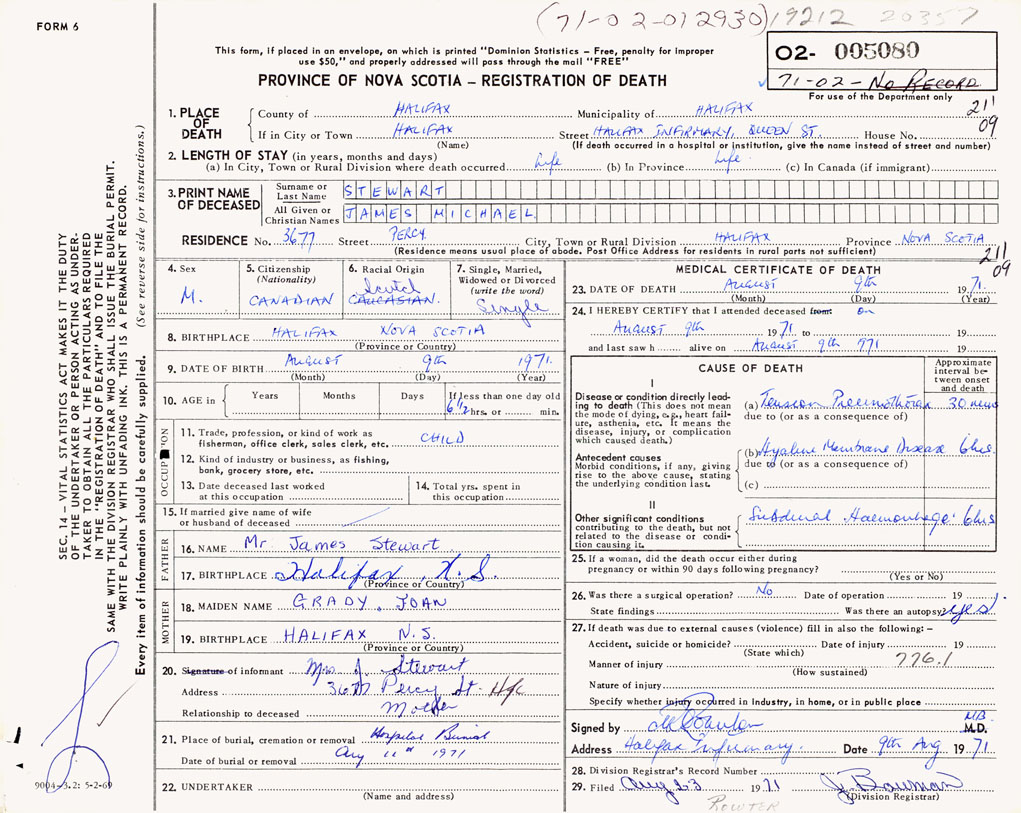 FORM 6
(71-02-012930) 19212 20357
This form, if placed in an envelope, on which is printed "Dominion Statistics – Free, penalty for improper
use $50," and properly addressed will pass through the mail "FREE"
PROVINCE OF NOVA SCOTIA – REGISTRATION OF DEATH
02- 005080
71-02-No RECORD
For use of the Department only
211
09
1. PLACE OF DEATH
County of HALIFAX Municipality of HALIFAX
If in City or Town HALIFAX Street HALIFAX INFIRMARY, QUEEN ST. House No.
(Name) (If death occurred in a hospital or institution, give the name instead of street and number)
2. LENGTH OF STAY (in years, months and days)
(a) In City, Town or Rural Division where death occurred Life (b) In Province Life (c) In Canada (if immigrant)
3. PRINT NAME OF DECEASED
Surname or Last Name STEWART
All Given or Christian Names JAMES MICHAEL
RESIDENCE No. 3677 Street PERCY City, Town or Rural Division HALIFAX Province NOVA SCOTIA
(Residence means usual place of abode. Post Office Address for residents in rural parts not sufficient)
211
09
4. Sex
M.
5. Citizenship
(Nationality)
CANADIAN
6. Racial Origin
Scotch
CAUCASIAN.
7. Single, Married,
Widowed or Divorced
(write the word)
Single
8. BIRTHPLACE HALIFAX NOVA SCOTIA
(Province or Country)
9. DATE OF BIRTH August 9th 1971
(Month) (Day) (Year)
10. AGE in Years Months Days If less than one day old
6 1/2 hrs. or min.
OCCUPATION
11. Trade, profession, or kind of work as
fisherman, office clerk, sales clerk, etc. CHILD
12. Kind of industry or business, as fishing,
bank, grocery store, etc.
13. Date deceased last worked
at this occupation
14. Total yrs. spent in
this occupation
15. If married give name of wife
or husband of deceased
FATHER
16. NAME Mr. James Stewart
17. BIRTHPLACE Halifax, N.S.
(Province or Country)
MOTHER
18. MAIDEN NAME GRADY, JOAN
19. BIRTHPLACE HALIFAX N.S.
(Province or Country)
20. Signature of informant Mrs J. Stewart
Address 3677 Percy St. Hfx
Relationship to deceased Mother
21. Place of burial, cremation or removal Hospital Burial
Date of burial or removal Aug 11th 1971
22. UNDERTAKER
(Name and address)
MEDICAL CERTIFICATE OF DEATH
23. DATE OF DEATH August 9th 1971
(Month) (Day) (Year)
24. I HEREBY CERTIFY that I attended deceased from: on
August 9th 1971 to 19
and last saw h alive on August 9th 1971 19
CAUSE OF DEATH
Approximate
interval be-
tween onset
and death
I
Disease or condition directly lead-
ing to death (This does not mean
the mode of dying, e.g., heart fail-
ure, asthenia, etc. It means the
disease, injury, or complication
which caused death.)
(a) Tension Pneumothorax 30 mins
due to (or as a consequence of)
Antecedent causes
Morbid conditions, if any, giving
rise to the above cause, stating
the underlying condition last.
(b) Hyaline Membrane Disease 6hrs.
due to (or as a consequence of)
(c)
II
Other significant conditions
contributing to the death, but not
related to the disease or condi-
tion causing it.
Subdural Haemorrhage 6hrs
25. If a woman, did the death occur either during
pregnancy or within 90 days following pregnancy?
(Yes or No)
26. Was there a surgical operation? No Date of operation 19
State findings Was there an autopsy? yes
27. If death was due to external causes (violence) fill in also the following: –
Accident, suicide or homicide? Date of injury 19
(State which)
776.1
Manner of injury
(How sustained)
Nature of injury
Specify whether injury occurred in Industry, in home, or in public place
Signed by M.B. M.D.
Address Halifax Infirmary. Date 9th Aug 1971
28. Division Registrar's Record Number
29. Filed Aug 23 1971 J. Bowman
(Division Registrar)
ROWTER
SEC. 14 – VITAL STATISTICS ACT MAKES IT THE DUTY
OF THE UNDERTAKER OR PERSON ACTING AS UNDER-
TAKER TO OBTAIN ALL THE PARTICULARS REQUIRED
IN THE "REGISTRATION OF DEATH" AND TO FILE THE
SAME WITH THE DIVISION REGISTRAR WHO SHALL ISSUE THE BURIAL PERMIT.
WRITE PLAINLY WITH UNFADING INK. THIS IS A PERMANENT RECORD.
Every item of information should be carefully supplied. (See reverse side for instructions.)
9004-3.2: 5-2-69